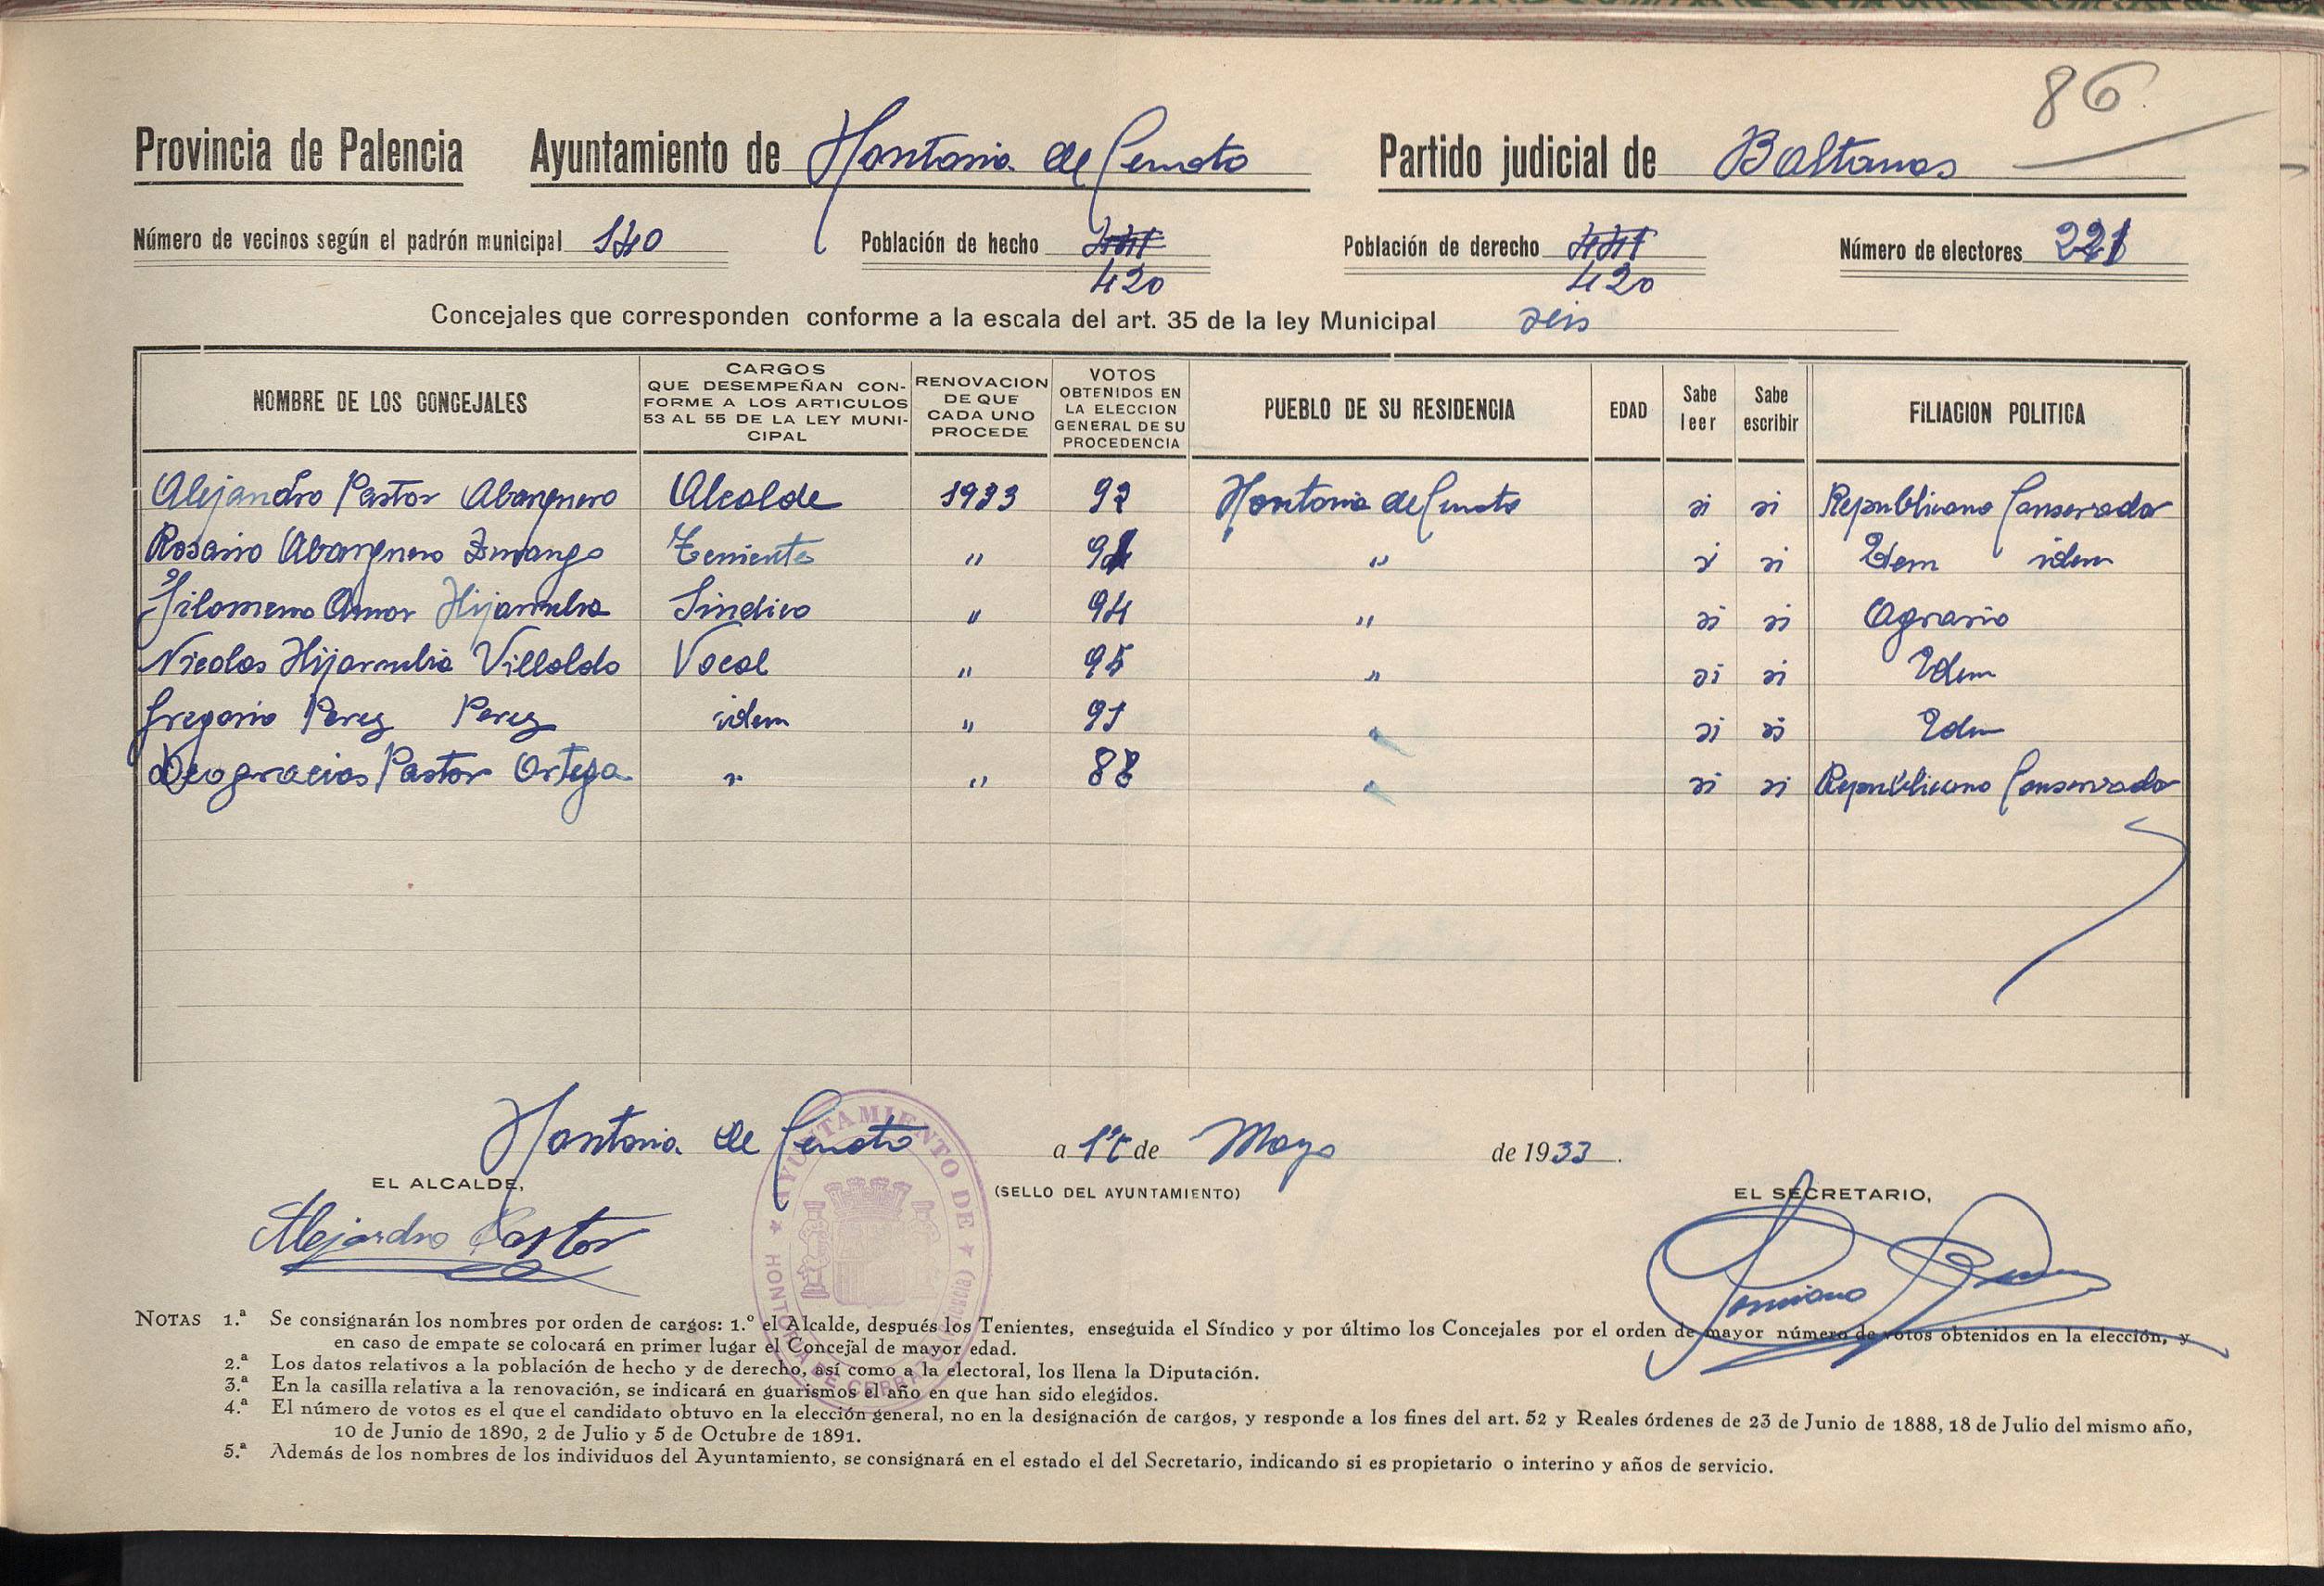 86
Provincia de Palencia Ayuntamiento de Hontoria de Cerrato Partido judicial de Baltanas
Número de vecinos según el padrón municipal 140 Población de hecho 441 Población de derecho 441 Número de electores 221
420 420
Concejales que corresponden conforme a la escala del art. 35 de la ley Municipal seis
NOMBRE DE LOS CONCEJALES
CARGOS
QUE DESEMPEÑAN CON-
FORME A LOS ARTICULOS
53 AL 55 DE LA LEY MUNI-
CIPAL
RENOVACION
DE QUE
CADA UNO
PROCEDE
VOTOS
OBTENIDOS EN
LA ELECCION
GENERAL DE SU
PROCEDENCIA
PUEBLO DE SU RESIDENCIA
EDAD
Sabe
leer
Sabe
escribir
FILIACION POLITICA
Alejandro Pastor Abarquero Alcalde 1933 92 Hontoria de Cerrato si si Republicano Conservador
Rosario Abarquero Durango Teniente " " si si Idem idem
Filomeno Amor Hijarrubia Sindico " 94 " si si Agrario
Nicolas Hijarrubia Villoldo Vocal " 95 " si si Idem
Gregorio Perez Perez idem " 91 " si si Idem
Deogracias Pastor Ortega " " 88 " si si Republicano Conservador
Hontoria de Cerrato a 1º de Mayo de 1933.
EL ALCALDE,
(SELLO DEL AYUNTAMIENTO)
EL SECRETARIO,
Alejandro Pastor
AYUNTAMIENTO DE HONTORIA DE CERRATO (Palencia)
NOTAS 1.ª Se consignarán los nombres por orden de cargos: 1.º el Alcalde, después los Tenientes, enseguida el Síndico y por último los Concejales por el orden de mayor número de votos obtenidos en la elección, y
en caso de empate se colocará en primer lugar el Concejal de mayor edad.
2.ª Los datos relativos a la población de hecho y de derecho, así como a la electoral, los llena la Diputación.
3.ª En la casilla relativa a la renovación, se indicará en guarismos el año en que han sido elegidos.
4.ª El número de votos es el que el candidato obtuvo en la elección general, no en la designación de cargos, y responde a los fines del art. 52 y Reales órdenes de 23 de Junio de 1888, 18 de Julio del mismo año,
10 de Junio de 1890, 2 de Julio y 5 de Octubre de 1891.
5.ª Además de los nombres de los individuos del Ayuntamiento, se consignará en el estado el del Secretario, indicando si es propietario o interino y años de servicio.